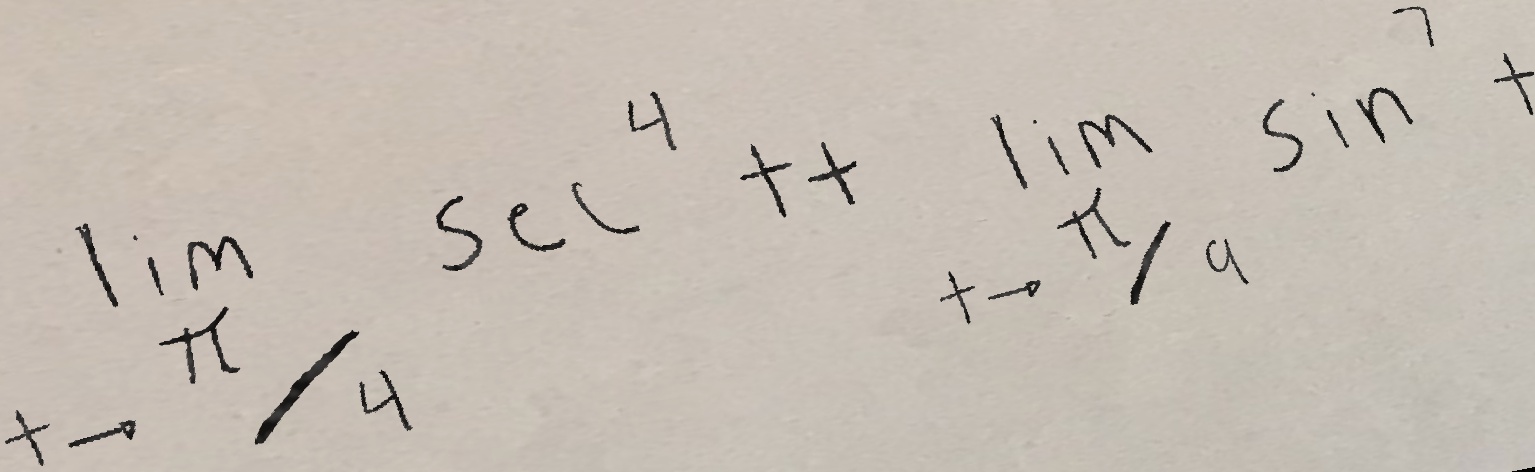 lim t→π/4 sec⁴ t + lim t→π/9 sin⁷ t